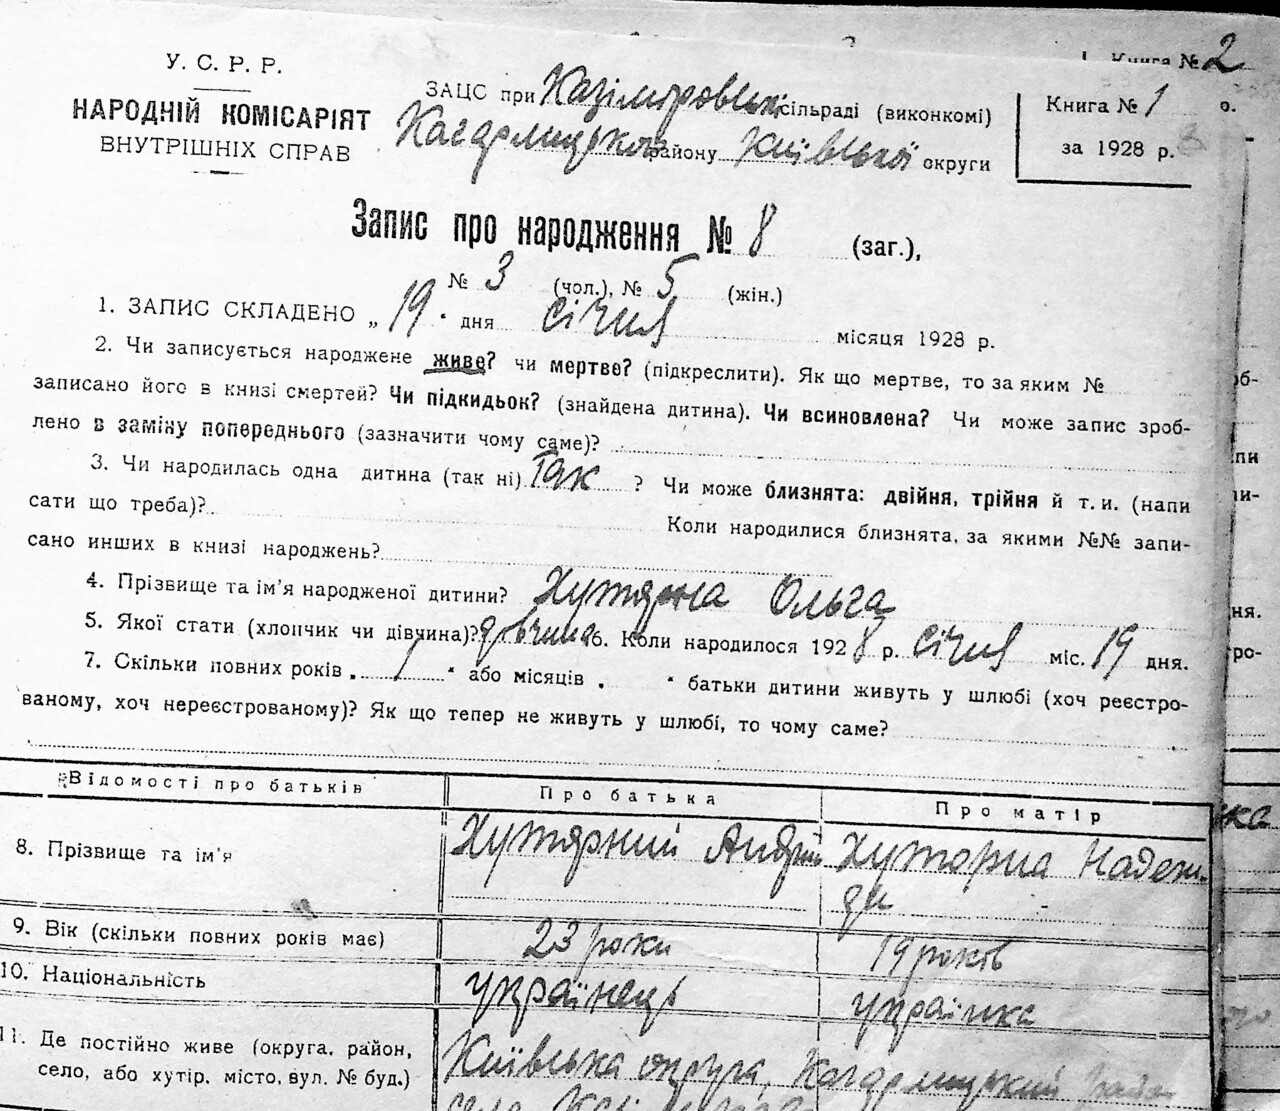 У. С. Р. Р.
НАРОДНІЙ КОМІСАРІЯТ
ВНУТРІШНІХ СПРАВ
ЗАЦС при Казімировській сільраді (виконкомі)
Кагарлицького району Київської округи
Книга № 1
за 1928 р.
Книга № 2
Запис про народження № 8 (заг.),
№ 3 (чол.), № 5 (жін.)
1. ЗАПИС СКЛАДЕНО „ 19 " дня січня місяця 1928 р.
2. Чи записується народжене живе? чи мертве? (підкреслити). Як що мертве, то за яким №
записано його в книзі смертей? Чи підкидьок? (знайдена дитина). Чи всиновлена? Чи може запис зроб-
лено в заміну попереднього (зазначити чому саме)?
3. Чи народилась одна дитина (так ні) Так ? Чи може близнята: двійня, трійня й т. и. (напи
сати що треба)? Коли народилися близнята, за якими №№ запи-
сано инших в книзі народжень?
4. Прізвище та ім'я народженої дитини? Хуторна Ольга
5. Якої стати (хлопчик чи дівчина)? дівчина 6. Коли народилося 1928 р. січня міс. 19 дня.
7. Скільки повних років „ 1 " або місяців „ " батьки дитини живуть у шлюбі (хоч реєстро-
ваному, хоч нереєстрованому)? Як що тепер не живуть у шлюбі, то чому саме?
Відомості про батьків Про батька Про матір
8. Прізвище та ім'я Хуторний Андрій Хуторна Надеж-
да
9. Вік (скільки повних років має) 23 роки 19 років
10. Національність українець українка
11. Де постійно живе (округа, район, Київська округа, Кагарлицький район
село, або хутір, місто, вул. № буд.) село